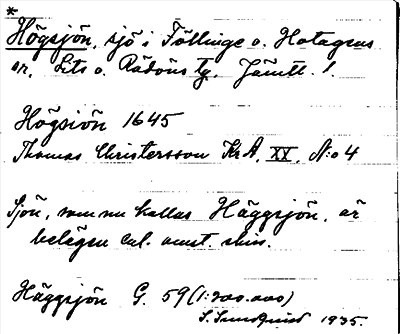 *
Högsjön, sjö i Föllinge o. Hotagens
sn, Lits o. Rödöns tg, Jämtl. l.
Högsiön 1645
Thomas Christersson KrA, XX, N:o 4
Sjön, som nu kallas Häggsjön, är
belägen enl. anst. skiss.
Häggsjön G. 59 (1:200.000)
S. Sundquist 1935.